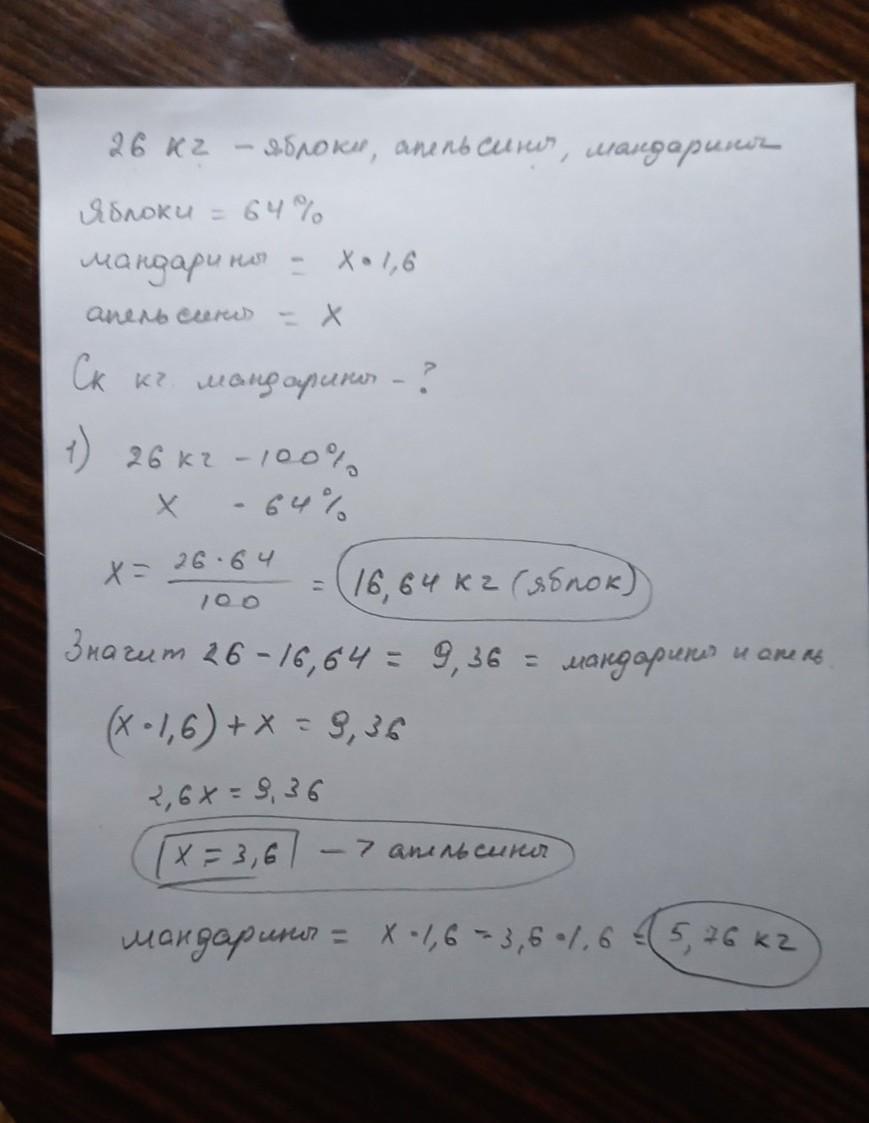 26 кг – яблоки, апельсины, мандарины
Яблоки = 64%
мандарины = x·1,6
апельсины = x
Ск кг мандарины – ?
1) 26 кг – 100%
x – 64%
x = 26·64 / 100 = 16,64 кг (яблок)
Значит 26 – 16,64 = 9,36 = мандарины и апель.
(x·1,6) + x = 9,36
2,6x = 9,36
x = 3,6 –> апельсины
мандарины = x·1,6 = 3,6·1,6 = 5,76 кг